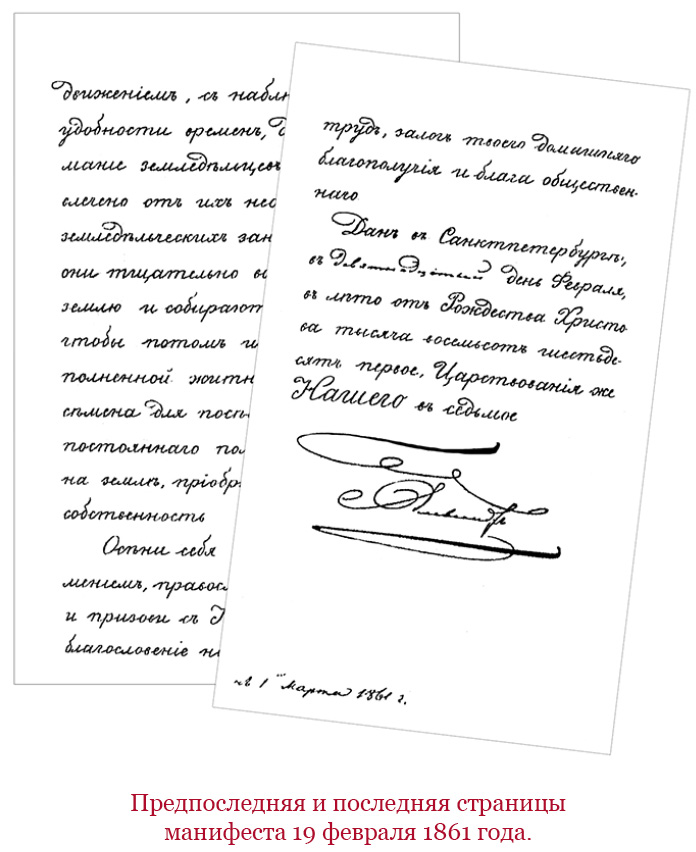 движенiемъ, съ наблю
удобности временъ,
манiе земледѣльцевъ
влечено отъ ихъ нео
земледѣльческихъ зан
они тщательно в
землю и собираютъ
чтобы потомъ и
полненной житн
сѣмена для посѣ
постояннаго по
на землѣ, прiобр
собственность
Осѣни себя
менiемъ, правосл
и призови съ Н
благословенiе н
трудъ, залогъ твоего домашняго
благополучiя и блага обществен-
наго
Данъ въ Санктпетербургѣ,
въ девятнадцатый день Февраля,
въ лѣто отъ Рождества Христо
ва тысяча восемьсотъ шестьде-
сятъ первое, Царствованiя же
Нашего въ седьмое
Александръ
1 марта 1861 г.
Предпоследняя и последняя страницы
манифеста 19 февраля 1861 года.